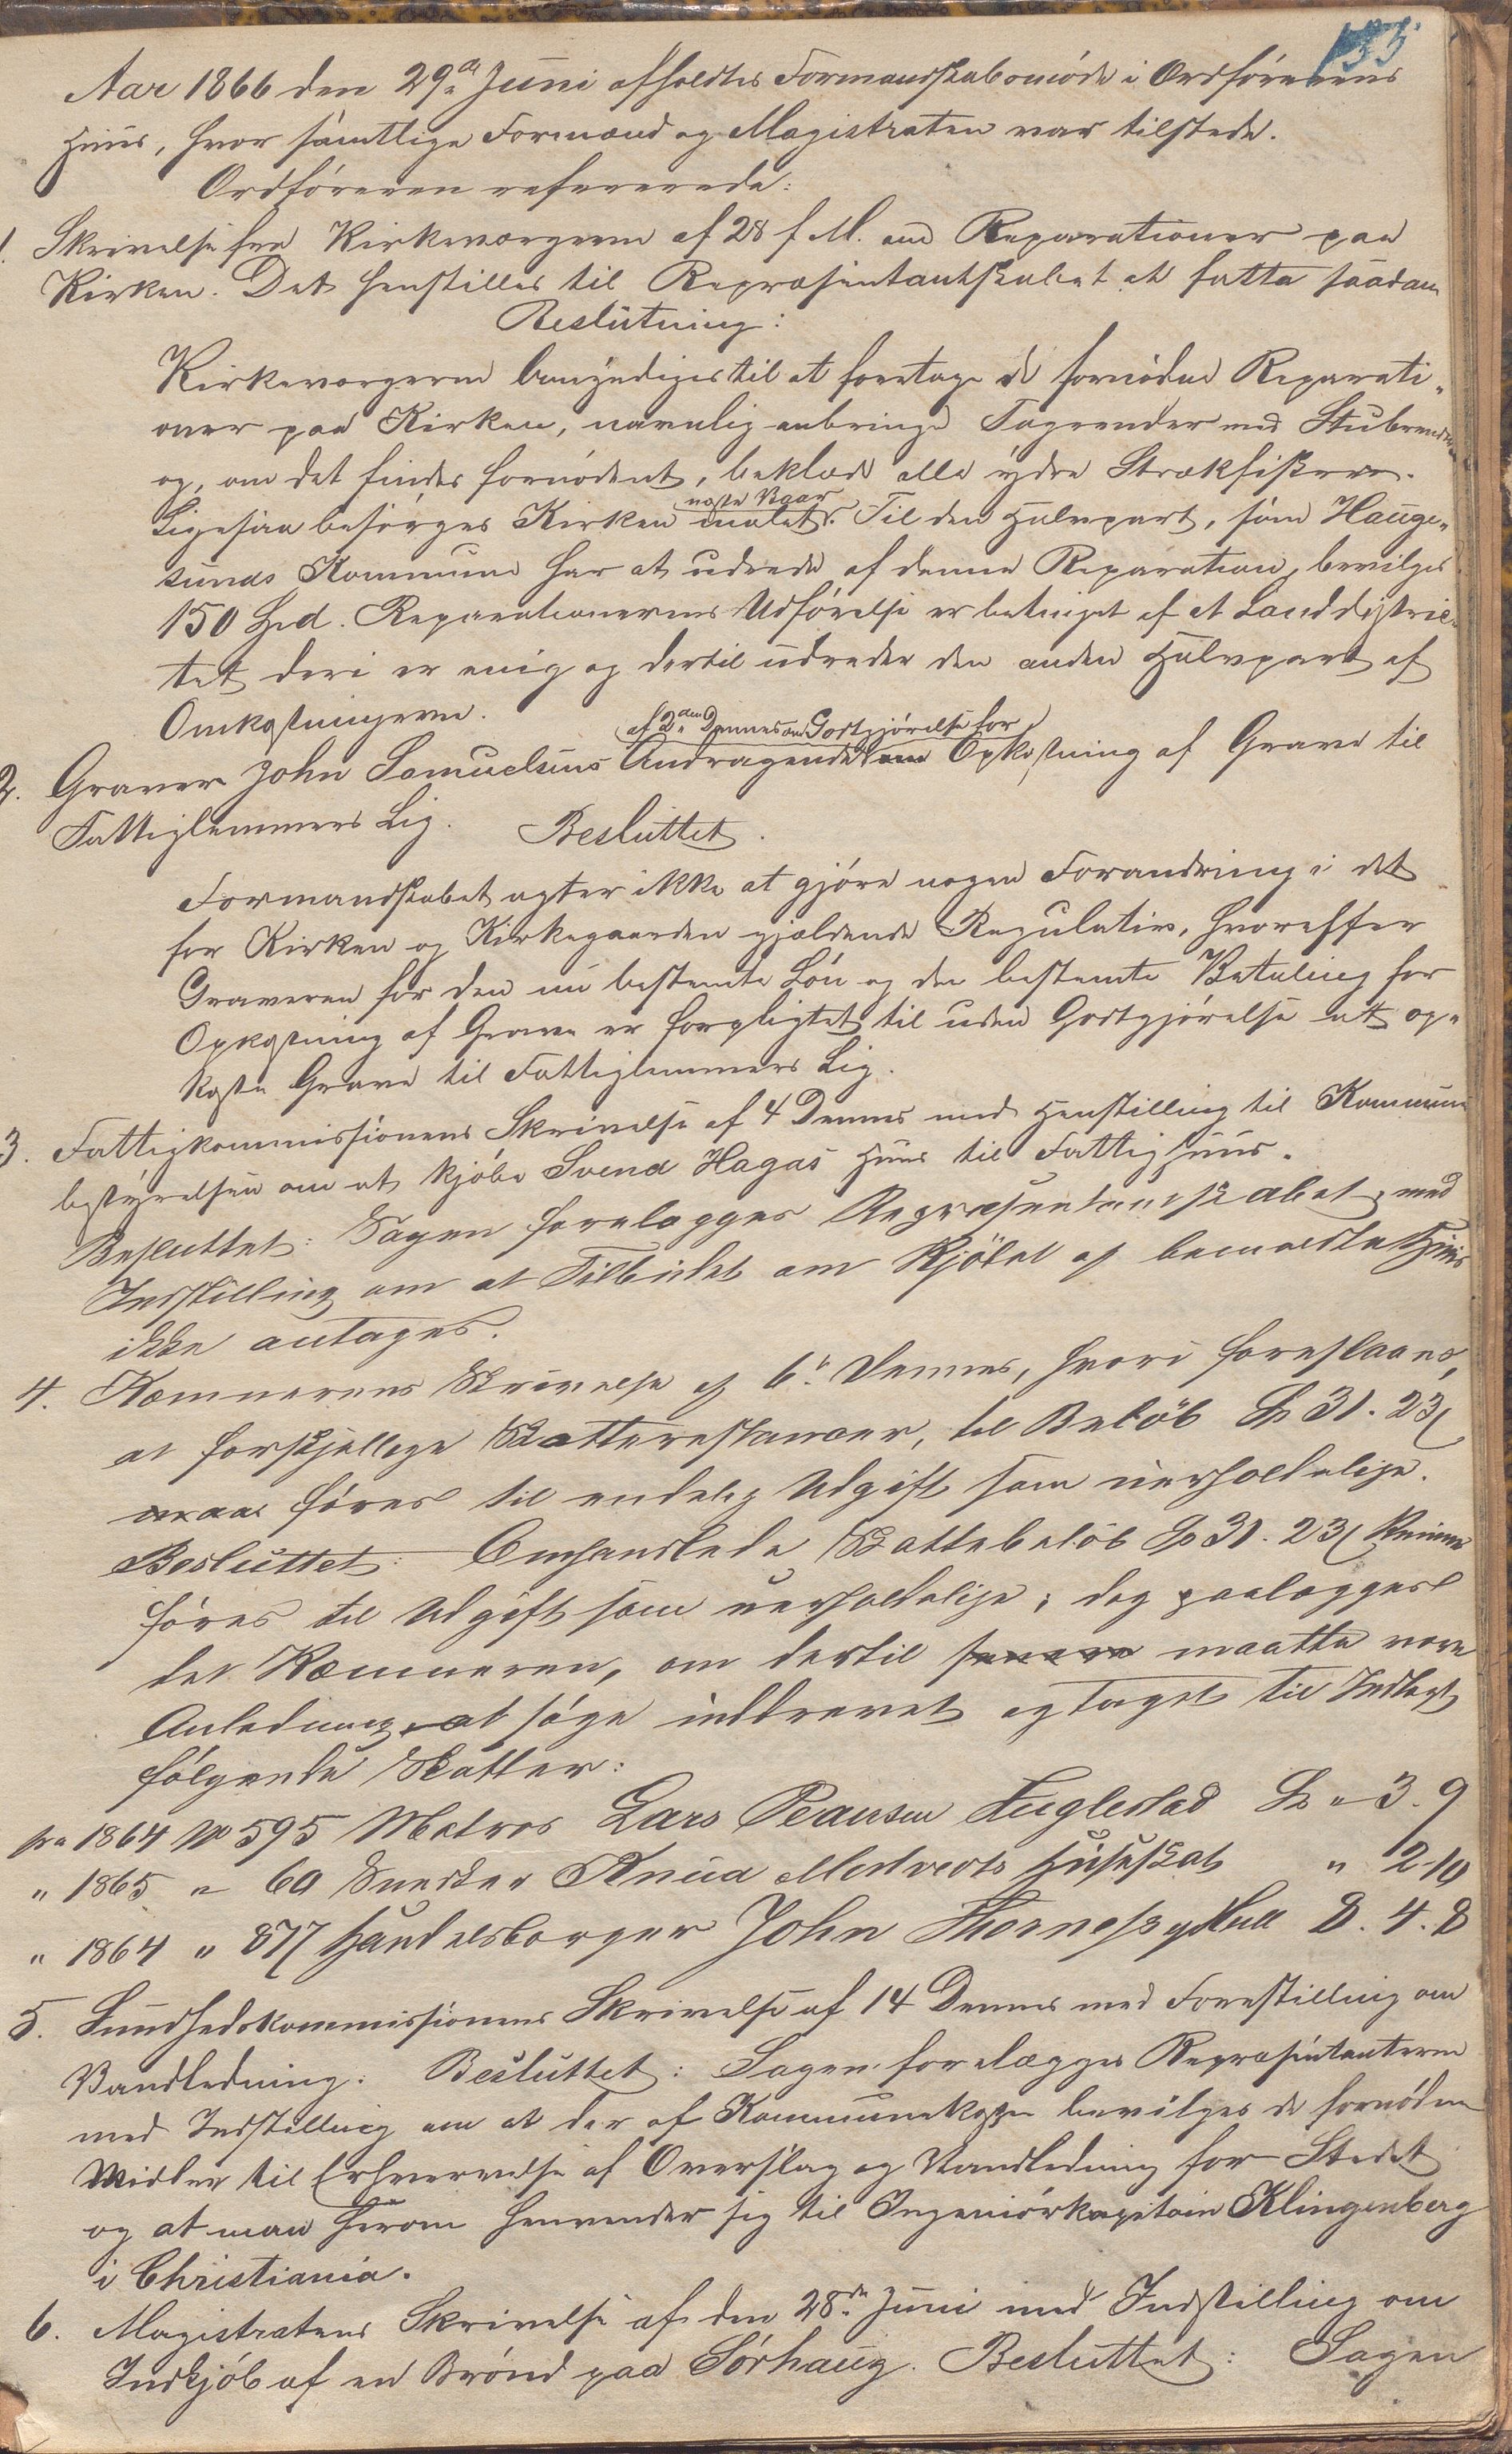 135
Aar 1866 den 29de Juni afholdtes Formandskabsmöde i Ordförerens
Huus, hvor samtlige Formænd og Magistraten var tilstede.
Ordföreren refererede:
1. Skrivelse fra Kirkeværgerne af 28 f. M. om Reparationer paa
Kirken. Det henstilles til Repræsentantskabet at fatte saadan
Beslutning:
Kirkeværgerne bemyndiges til at foretage de fornödne Reparati-
oner paa Kirken, navnlig anbringe Tagrender med
og, om det findes fornödent, beklæde alle ydre
Ligesaa besörges Kirken næste Vaar malet. Til den Halvpart, som Hauge-
sunds Kommune har at udrede af denne Reparation, bevilges
150 Spd. Reparationernes Udförelse er betinget af at Landdistric-
tet deri er enig og dertil udreder den anden Halvpart af
Omkostningerne.
2. Graver John Samuelsens Andragende af 2den Dennes om Godtgjörelse for Opkastning af Grave til
Fattiglemmers Lig. Besluttet.
Formandskabet agter ikke at gjöre nogen Forandring i det
for Kirken og Kirkegaarden gjældende Regulativ, hvorefter
Graveren for den nu bestemte Lön og den bestemte Betaling for
Opkastning af Grave er forpligtet til uden Godtgjörelse at op-
kaste Grave til Fattiglemmers Lig.
3. Fattigkommissionens Skrivelse af 4 Dennes med Henstilling til Kommune
bestyrelsen om at kjöbe Svend Hagas Huus til Fattighuus.
Besluttet: Sagen forelægges Repræsentantskabet, med
Indstilling om at Tilbudet om Kjöbet af bemeldte Huus
ikke antages.
4. Kæmnerens Skrivelse af 6te Dennes, hvori foreslaaes,
at forskjellige Skatterestancer, til Belöb Sp 31. 23
maae föres til endelig Udgift som uerholdelige.
Besluttet: Omhandlede Skattebelöb Sp 31. 23
föres til Udgift som uerholdelige; dog paalægges
det Kæmneren, om dertil senere maatte være
Anledning, at söge inddrevet og taget til Indtægt
fölgende Skatter:
fra 1864 No 595 Matros Lars Peansen Fuglestad Sp " 3. 9
" 1865 " 60 Snedker Knud Huusskat " 2 10
" 1864 " 877 Handelsborger John 8. 4. 8
5. Sundhedskommissionens Skrivelse af 14 Dennes med Forestilling om
Vandledning. Besluttet: Sagen forelægges Repræsentanterne
med Indstilling om at der af Kommunekassen bevilges de fornödne
Midler til Erhvervelse af Overslag og Vandledning for Stedet
og at man herom henvender sig til Ingeniörkapitain Klingenberg
i Christiania.
6. Magistratens Skrivelse af den 28de Juni med Indstilling om
Indkjöb af en Brönd paa Sörhaug. Besluttet: Sagen